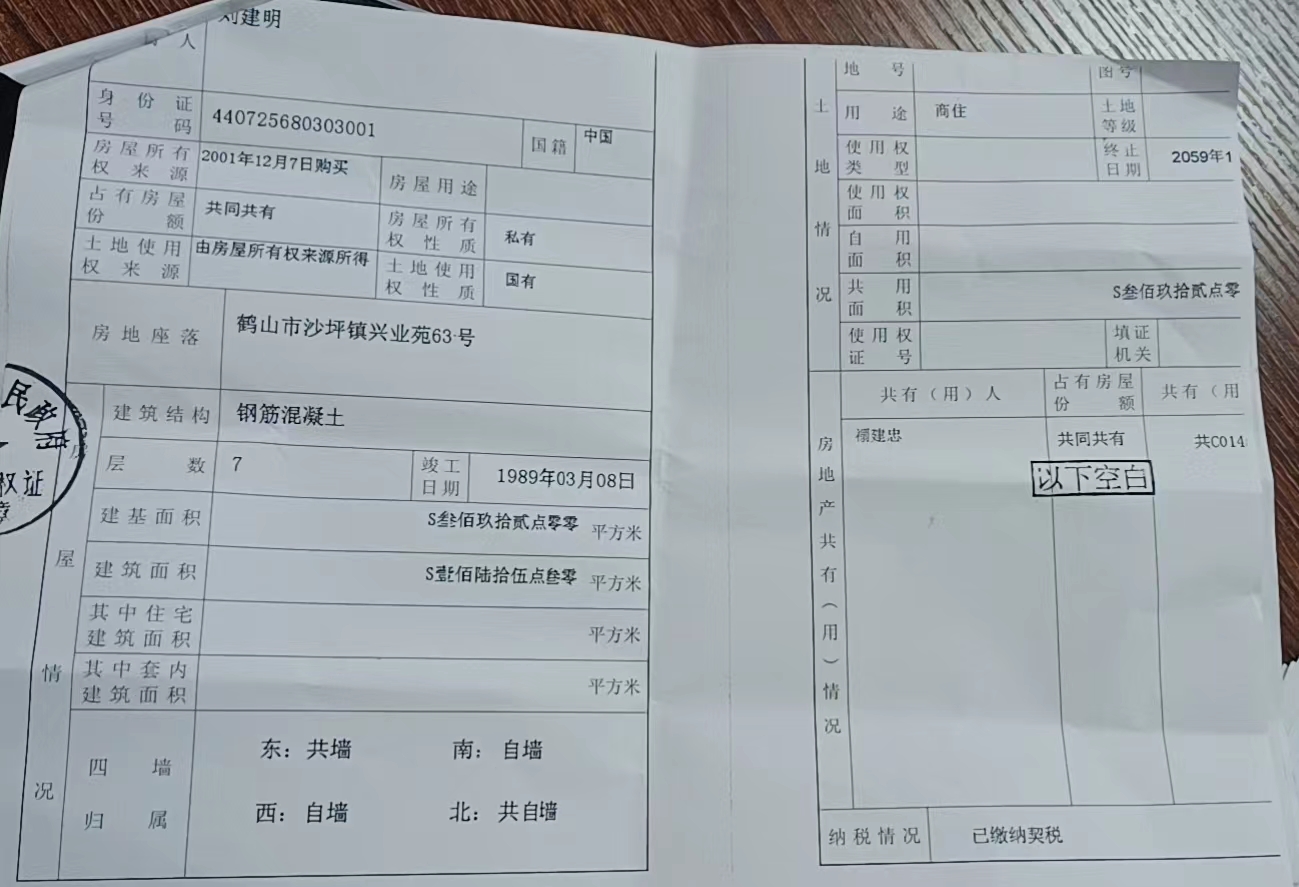 刘建明
人
身份证
号码
440725680303001
国籍
中国
房屋所有
权来源
2001年12月7日购买
房屋用途
占有房屋
份额
共同共有
房屋所有
权性质
私有
土地使用
权来源
由房屋所有权来源所得
土地使用
权性质
国有
房地座落
鹤山市沙坪镇兴业苑63号
房屋情况
建筑结构
钢筋混凝土
层数
7
竣工
日期
1989年03月08日
建基面积
S叁佰玖拾贰点零零
平方米
建筑面积
S壹佰陆拾伍点叁零
平方米
其中住宅
建筑面积
平方米
其中套内
建筑面积
平方米
四墙
归属
东：共墙
南：自墙
西：自墙
北：共自墙
权证
土地情况
地号
图号
用途
商住
土地
等级
使用权
类型
终止
日期
2059年1
使用权
面积
自用
面积
共用
面积
S叁佰玖拾贰点零
使用权
证号
填证
机关
房地产共有（用）情况
共有（用）人
占有房屋
份额
共有（用
禤建忠
共同共有
共C014
以下空白
纳税情况
已缴纳契税